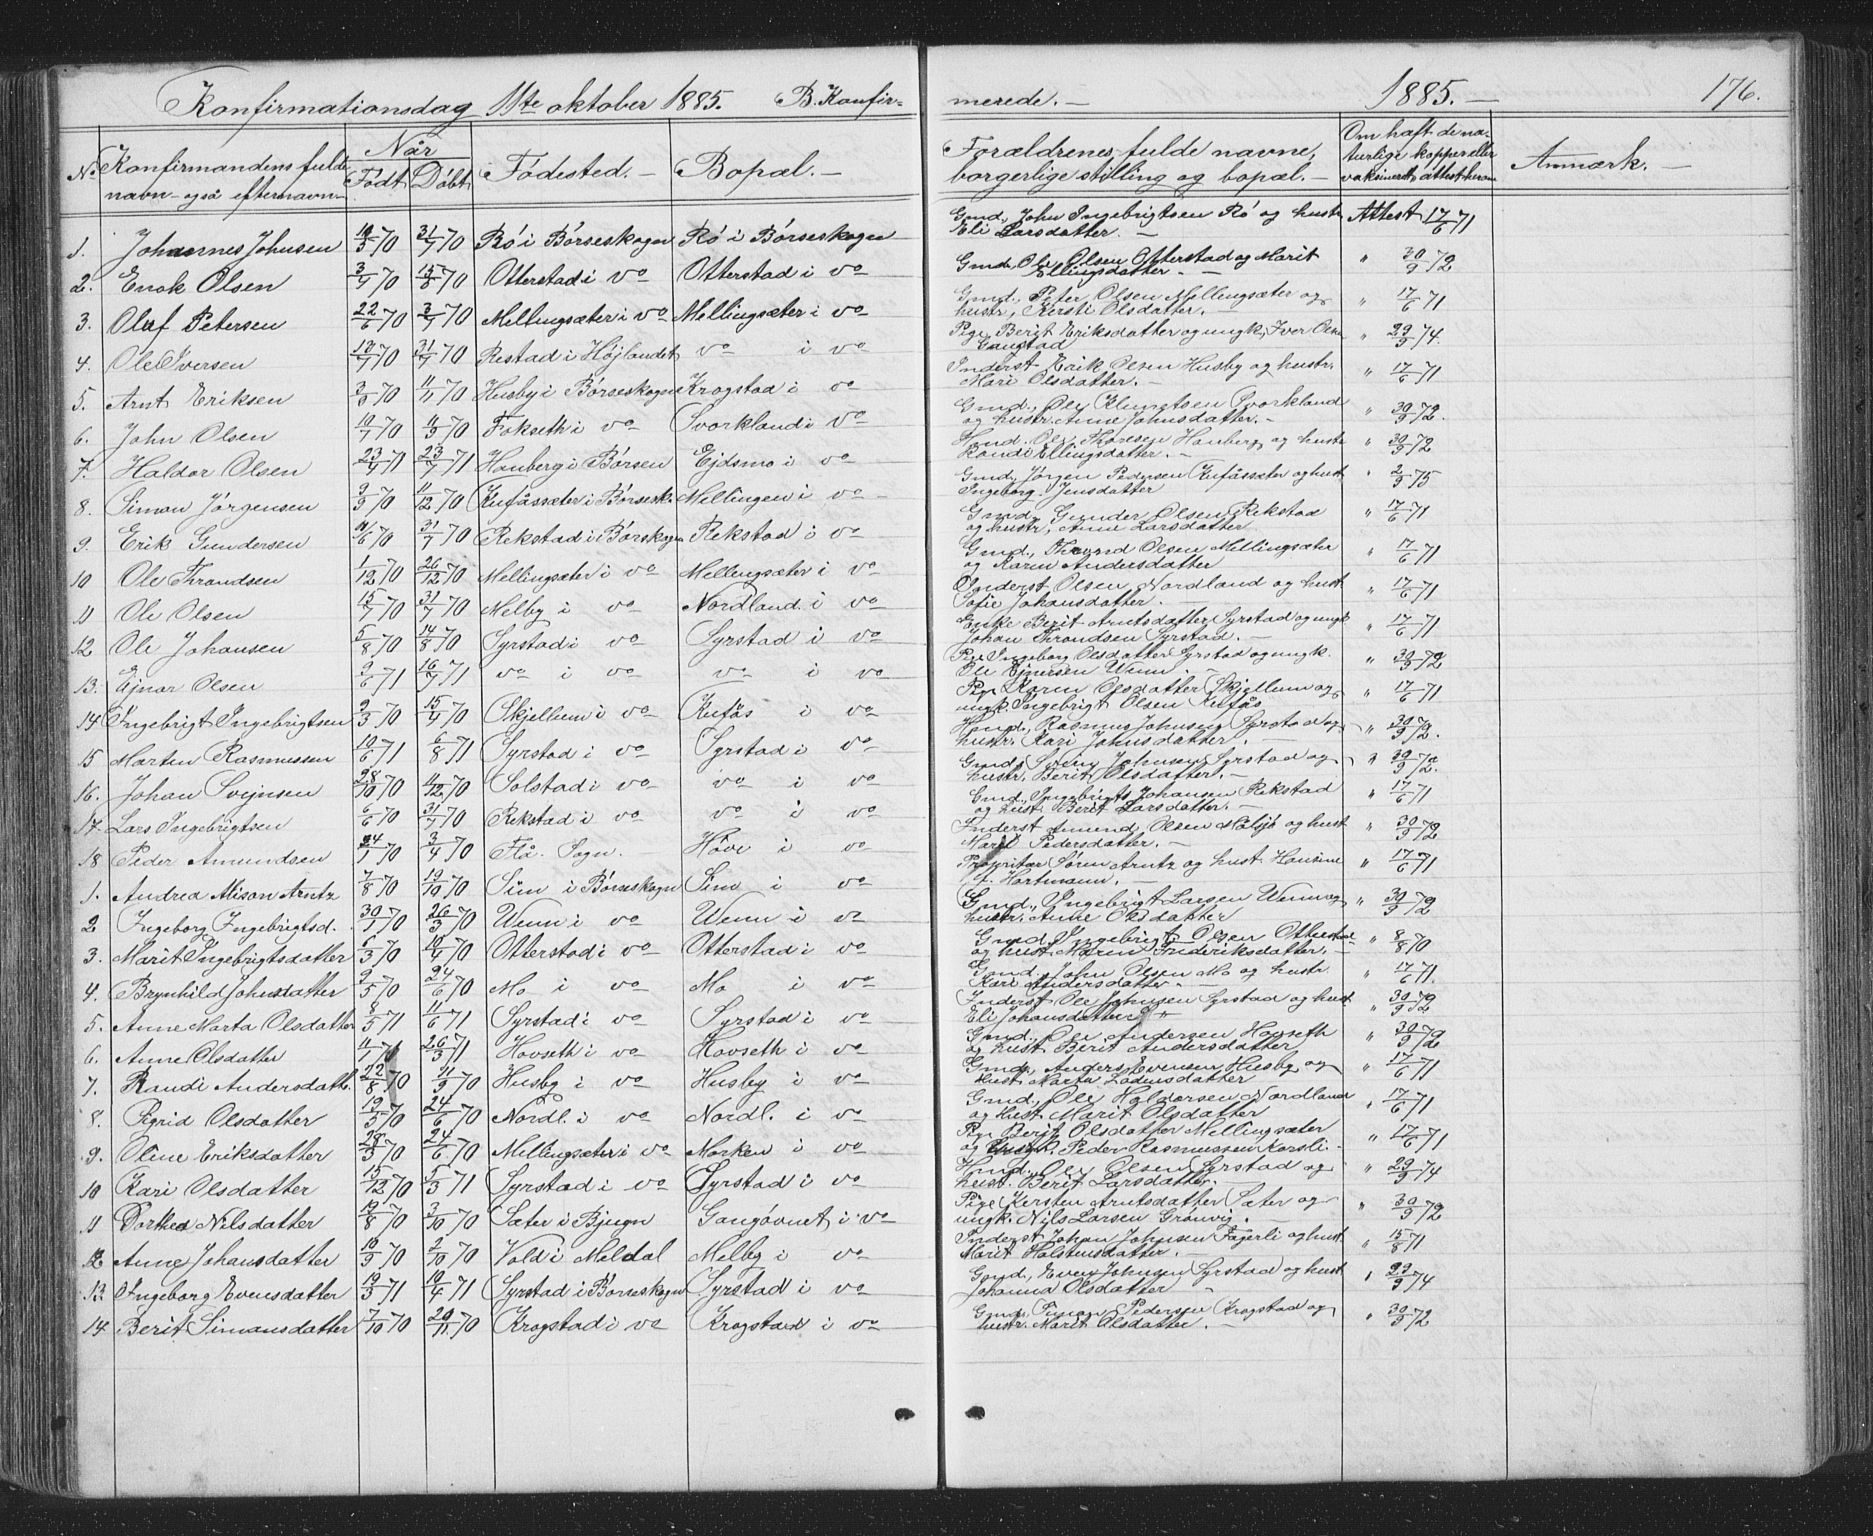 Konfirmationsdag 11te oktober 1885. B. Konfir-
merede. — 1885. — 176.
No Konfirmandens fulde navn - også efternavn - Når Født Døbt Fødested. — Bopæl. —
Forældrenes fulde navne, borgerlige stilling og bopæl. — Om haft de naturlige kopper eller vaksineret, attest herom Anmærk. —
1. Johannes Johnsen 19/3 70 31/7 70 Rø i Børseskogn Rø i Børseskogn Gmd., John Ingebrigtsen Rø og hustr Eli Larsdatter. — Attest 17/6 71
2. Enok Olsen 3/4 70 15/8 70 Otterstad i do Otterstad i do Gmd, Ole Olsen Otterstad og Marit Ellingsdatter. — " 30/9 72
3. Oluf Petersen 22/6 70 3/7 70 Mellingsæter i do Mellingsæter i do Gmd., Peter Olsen Mellingsæter og hustr, Kersti Olsdatter. " 17/6 71
4. Ole Iversen 18/7 70 31/7 70 Restad i Højlandet do i do Pige Berit Eriksdatter og ungk, Iver Olsen Gaustad " 29/9 74
5. Arnt Eriksen 3/9 70 11/11 70 Husby i Børseskogn Krogstad i do Inderst Erik Olsen Husby og hustr. Mari Olsdatter. — " 17/6 71
6. John Olsen 10/7 70 11/9 70 Fokseth i do Svorkland i do Gmd., Ole Svorkland og hustr. Anne Johnsdatter. — " 30/9 72.
7. Haldor Olsen 23/4 71 23/7 71 Hanberg i Børsen Ejdsmo i do Hmd. Ole Thoresen Hanberg og hustr Randi Ellingsdatter. — " 30/9 72
8. Simon Jørgensen 9/9 70 11/12 70 Kufåssæter i Børsesk. Mellingen i do — Gmd, Jørgen Pedersen Kufåssæter og hustr Ingeborg Jensdatter " 2/9 75
9. Erik Gundersen 11/6 70 31/7 70 Rekstad i Børskogn Rekstad i do Gmd, Gunder Olsen Rekstad og hustr, Anne Larsdatter " 17/6 71
10 Ole Throndsen 1/12 70 26/12 70 Mellingsæter i do Mellingsæter i do Gmd., Thrond Olsen Mellingsæter og Karen Andersdatter " 17/6 71
11 Ole Olsen 15/7 70 31/7 70 Melby i do Nordland. i do Inderst Olsen Nordland og hust Sofie Johansdatter. — " 17/6 71
12 Ole Johansen 5/8 70 14/8 70 Syrstad i do Syrstad i do Enke Berit Arntsdatter Syrstad og ungk Johan Throndsen Syrstad. — " 17/6 71
13. Ejnar Olsen 9/6 71 16/7 71 do i do do i do Pige Ingeborg Olsdatter Syrstad og ungk. Ole Ejnersen Wenn — " 30/9 72
14 Ingebrigt Ingebrigtsen 9/3 70 15/4 70 Skjellum i do Kufås i do Pige Karen Olsdatter Skjellum og ungk. Ingebrigt Olsen Kufås " 17/6 71
15 Marten Rasmussen 10/6 71 6/8 71 Syrstad i do Syrstad i do Hmd., Rasmus Johnsen Syrstad og hustr. Kari Johnsdatter. " 30/9 72.
16. Johan Svejnsen 28/10 70 4/12 70 Solstad i do do i do Gmd, Svein Johnsen Syrstad og hustr. Berit Olsdatter. — " 30/9 72.
17. Lars Ingebrigtsen 6/6 70 31/7 70 Rekstad i do do i do Gmd., Ingebrigts Johansen Rekstad og hust Berit Larsdatter. — " 17/6 71
18 Peder Amundsen 24/1 70 3/4 70 Flå. Sogn. Hove i do Inderst Amund, Olsen Målsjø og hust Marit Pedersdatter. — " 30/9 72
1. Andrea Alison Arntz 7/8 70 19/10 70 Sim i Børseskogn Sim i do Proprietær Sørn Arntz og hust f. Hartmann. " 17/6 71
2 Ingeborg Ingebrigtsd. 30/1 70 26/3 70 Wenn i do Wenn i do Gmd., Ingebrigt Larsen Wenn og hustr. Anne Olsdatter " 30/9 72
3. Marit Ingebrigtsdatter 6/3 70 10/4 70 Otterstad i do Otterstad i do Gmd, Ingebrigt Olsen Otterstad og hust Maren Frideriksdatter. — " 8/8 70
4. Brynhild Johnsdatter 9/5 70 24/6 70 Mo i do Mo i do Gmd., John Olsen Mo og hustr. Kari Andersdatter. — " 17/6 71.
5. Anne Marta Olsdatter 8/5 71 11/6 71 Syrstad i do Syrstad i do Inderst Ole Johnsen Syrstad og hust Eli Johansdatter " 30/9 72
6. Anne Olsdatter 11/1 71 26/3 71 Hovseth i do Hovseth i do Gmd., Ole Andersen Hovseth og hust Berit Andersdatter " 30/9 72
7. Randi Andersdatt. 22/8 70 11/9 70 Husby i do Husby i do Gmd, Anders Evensen Husby og Hust Marta Ladensdatter " 17/6 71
8. Sigrid Olsdatter 19/5 70 24/6 70 Nordl. i do Nordl. i do Gmd, Ole Haldorsen Nordland og Hust. Marit Olsdatter " 17/6 71
9. Oline Eriksdatter 28/3 70 24/6 70 Mellingsæter i do Morken i do Pige Berit Olsdatter Mellingsæter og Peder Rasmussen Korsli — " 17/6 71
10 Kari Olsdatter 15/12 70 5/3 71 Syrstad i do Syrstad i do Hmd., Ole Olsen Syrstad og hust. Berit Larsdatter. " 29/9 74
11 Dorthea Nilsdatter 19/8 70 2/10 70 Sæter i Bjugn Gangåvnet i do Pige Kersten Arntsdatter Sæter og ungk. Nils Larsen Grønvig. — " 30/9 72
12 Anne Johansdatter 10/9 70 2/10 70 Vold i Meldal Melby i do Inderst Johan Johnsen Fagerli og hust Marit Halstensdatter. — " 15/8 71
13. Ingeborg Evensdatter 19/3 71 10/4 71 Syrstad i Børseskogn Syrstad i do Gmd., Even Johnsen Syrstad og hust Johanna Olsdatter " 29/9 74
14 Berit Simonsdatter 7/10 70 20/11 70 Krogstad i do Krogstad i do Gmd, Simon Pedersen Krogstad og hustr. Marit Olsdatter. — " 30/9 72